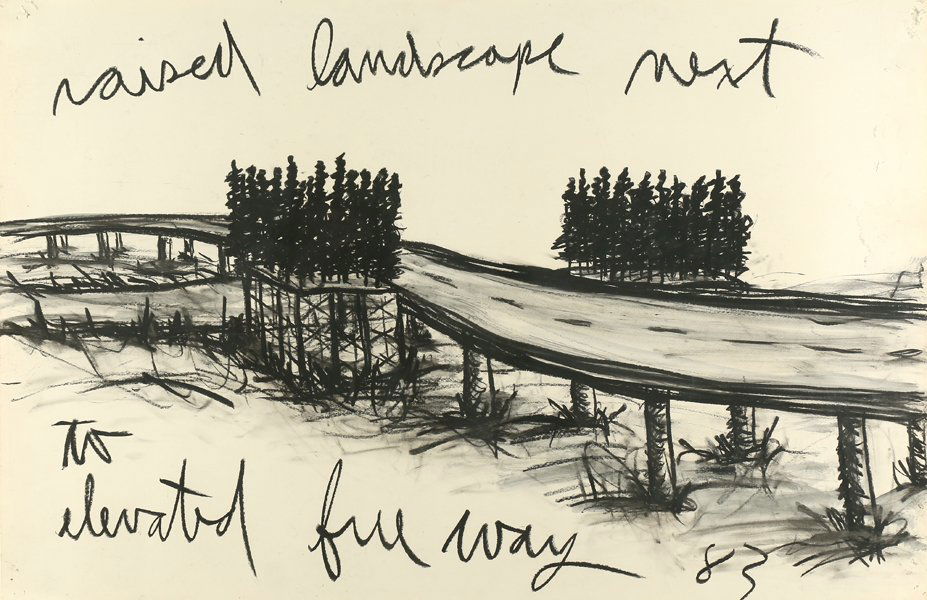 raised landscape next
to
elevated free way 83